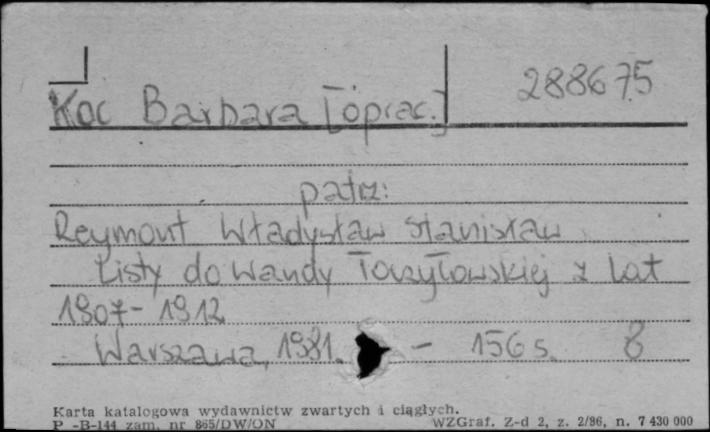 288675
Koc Barbara [oprac.]
patrz:
Reymont Władysław Stanisław
Listy do Wandy Toczyłowskiej z lat
1907-1912
Warszawa, 1981. - 156 s. 8
Karta katalogowa wydawnictw zwartych i ciągłych.
P -B-144 zam. nr 865/DW/ON WZGraf. Z-d 2, z. 2/86, n. 7 430 000